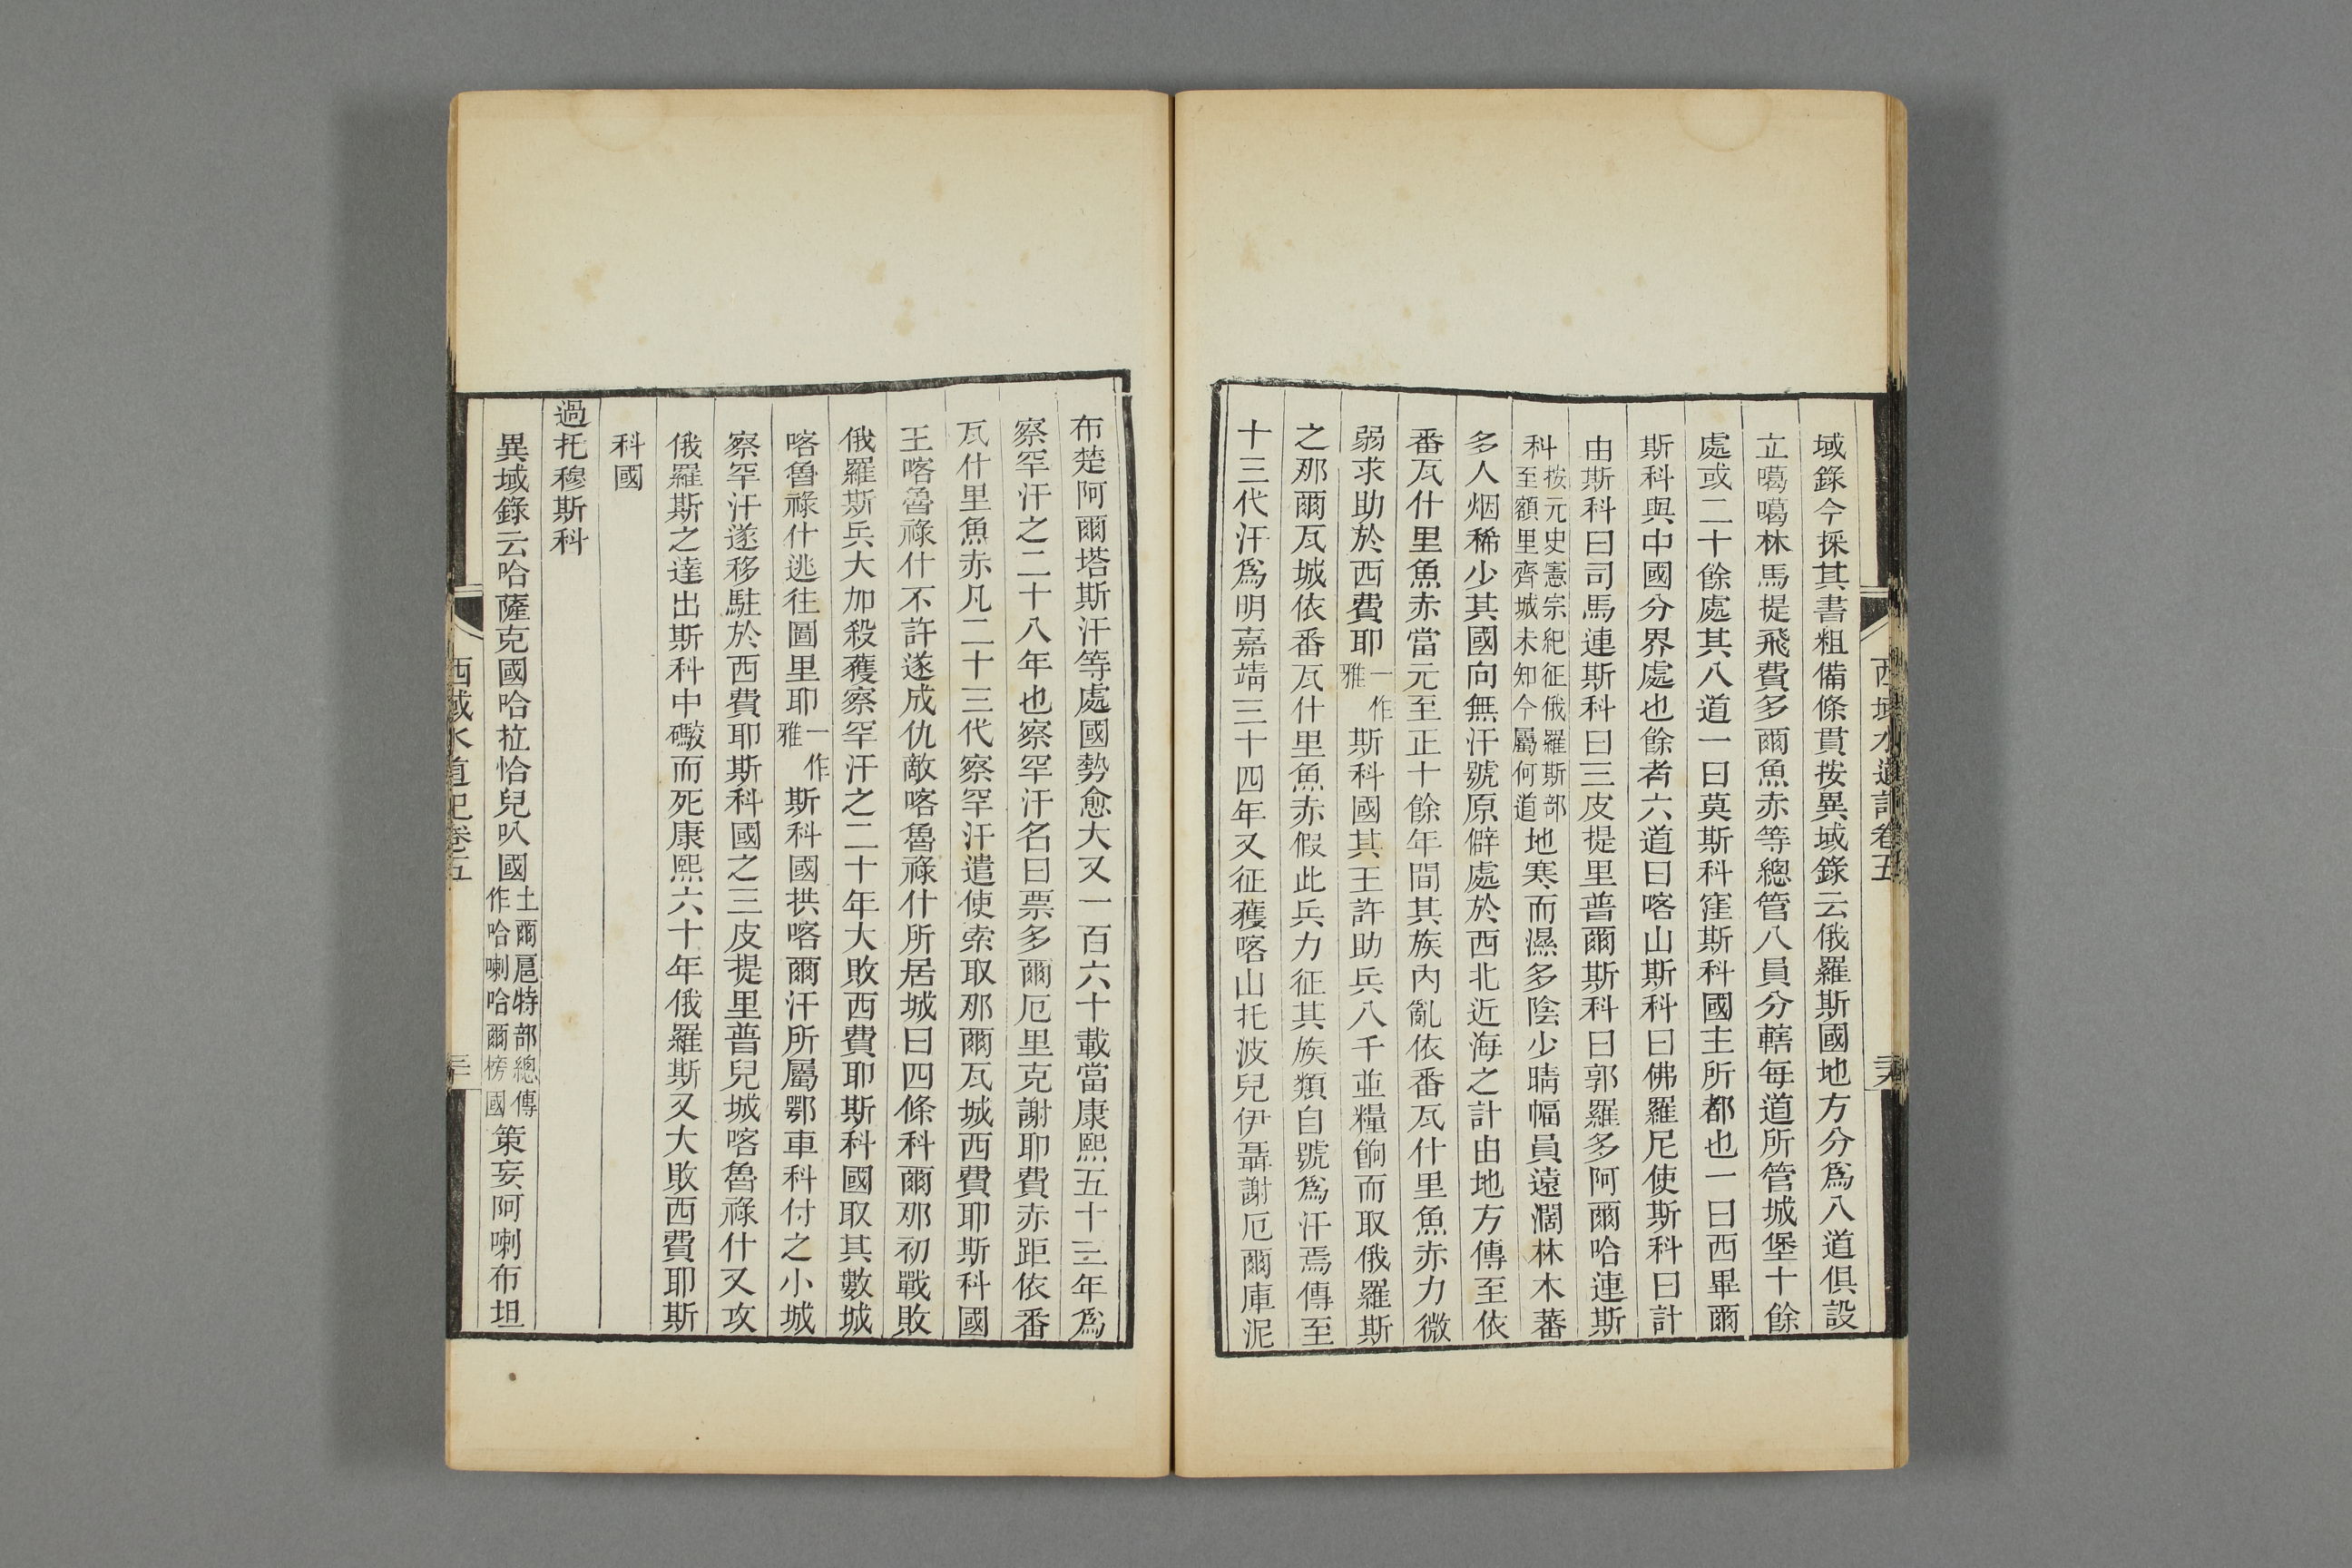 西域水道記卷五
域錄今採其書粗備條貫按異域錄云俄羅斯國地方分爲八道俱設
立噶噶林馬提飛費多爾魚赤等總管八員分轄每道所管城堡十餘
處或二十餘處其八道一曰莫斯科窪斯科國主所都也一曰西畢爾
斯科與中國分界處也餘者六道曰喀山斯科曰佛羅尼使斯科曰計
由斯科曰司馬連斯科曰三皮提里普爾斯科曰郭羅多阿爾哈連斯
科按元史憲宗紀征俄羅斯部至額里齊城未知今屬何道地寒而濕多陰少晴幅員遠濶林木蕃
多人烟稀少其國向無汗號原僻處於西北近海之計由地方傳至依
番瓦什里魚赤當元至正十餘年間其族內亂依番瓦什里魚赤力微
弱求助於西費耶一作雅斯科國其王許助兵八千並糧餉而取俄羅斯
之那爾瓦城依番瓦什里魚赤假此兵力征其族類自號爲汗焉傳至
十三代汗爲明嘉靖三十四年又征獲喀山托波兒伊聶謝厄爾庫泥
布楚阿爾塔斯汗等處國勢愈大又一百六十載當康熙五十三年爲
察罕汗之二十八年也察罕汗名曰票多爾厄里克謝耶費赤距依番
瓦什里魚赤凡二十三代察罕汗遣使索取那爾瓦城西費耶斯科國
王喀魯祿什不許遂成仇敵喀魯祿什所居城曰四條科爾那初戰敗
俄羅斯兵大加殺獲察罕汗之二十年大敗西費耶斯科國取其數城
喀魯祿什逃往圖里耶一作雅斯科國拱喀爾汗所屬鄂車科付之小城
察罕汗遂移駐於西費耶斯科國之三皮提里普兒城喀魯祿什又攻
俄羅斯之達出斯科中礮而死康熙六十年俄羅斯又大敗西費耶斯
科國
過托穆斯科
異域錄云哈薩克國哈拉恰兒叭國土爾扈特部總傳作哈喇哈爾榜國策妄阿喇布坦
西域水道記卷五